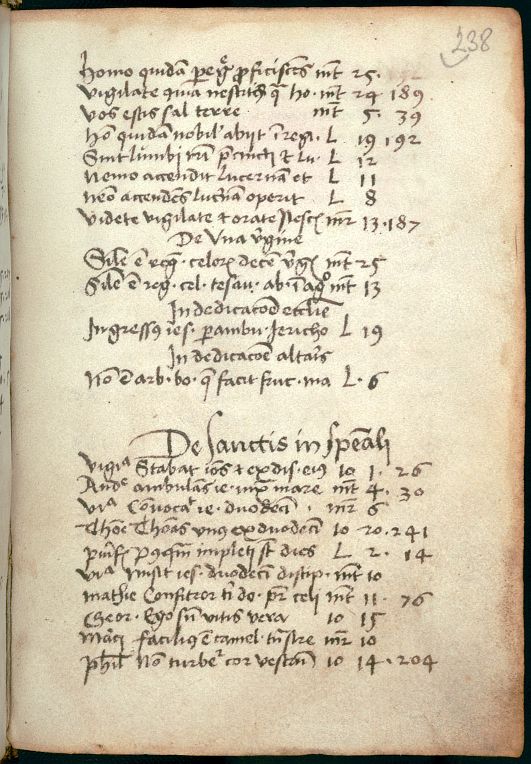 238
Homo quidã peregͤ ꝓficiscẽs mt 25
Vigilate quia nescitis qͣ ho. mt 24 189
Vos estis sal terre mt 5. 39
Hõ quidã nobil' abijt ĩ regi. L 19 192
Sint lũmbi vrĩ p̃cincti et lu. L 12
Nemo accendit lucernam et L 11
nẽo accendẽs lucñam operit L 8
Videte vigilate et orate mr 13. 187
De vna v̾gine
Sile ẽ regͫ. celorꝫ decẽ v̾gi mt 25
Sile ẽ reg. cel. tesau. ab. ĩ agͦ mt 13
In dedicatõe eccl̃ie
Ingressꝯ ies. p̱ambu. Jericho L 19
In dedicatõe altar̃is
Nõ ẽ arb. bo. q̃ facit fruc. ma L. 6
De sanctis in sp̃eãli
vigiᵃ Stabat iõs et ex dis. eiꝯ io 1. 26
Andͤ ambulãs ie. iuxᵃ mare mt 4. 30
viᵃ Cõuocaᵗ ie. duodecĩ . mr 6
Thõe Thõas vnꝯ ex duodecĩ io 20. 241
pũrf pꝯqᷓm impleti st̃ dies L 2. 14
viᵃ misit ies. duodecĩ discip. mt 10
mathie Confiteor ti dõ. pr̃ celi mt 11. 76
Geor. Ego sũ vitis vera io 15
Mãci facilius ẽ camel. trãsire mr 10
phil̃ Nõ turbeᵗ cor vestrũ io 14. 204